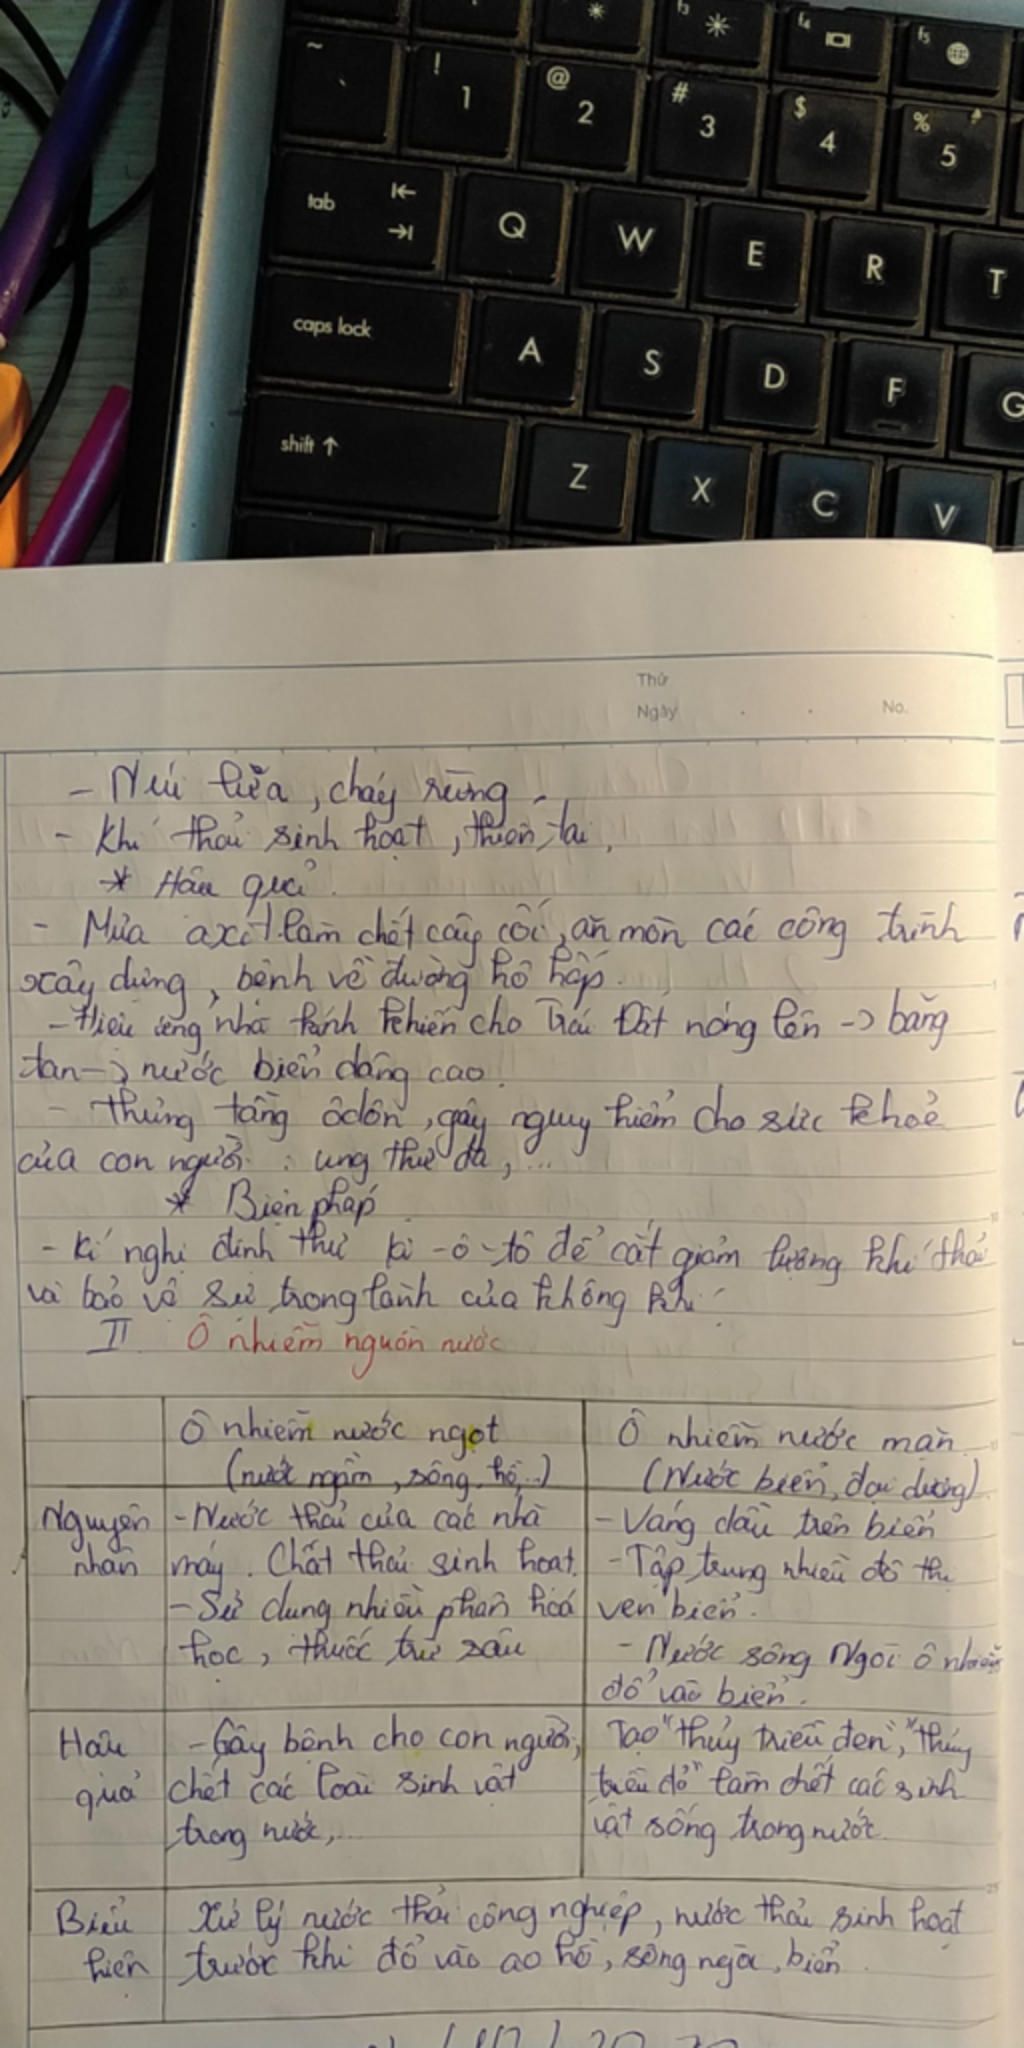 ~ ` ! 1 @ 2 # 3 $ 4 % 5
f3 f4 f5
tab Q W E R T
caps lock A S D F G
shift ↑ Z X C V
Thứ
Ngày No.
- Núi lửa, cháy rừng.
- Khí thải sinh hoạt, thiên tai.
* Hậu quả.
- Mưa axit làm chết cây cối, ăn mòn các công trình
xây dựng, bệnh về đường hô hấp.
- Hiệu ứng nhà kính khiến cho Trái Đất nóng lên -> băng
tan -> nước biển dâng cao.
- Thủng tầng ôdôn, gây nguy hiểm cho sức khoẻ
của con người: ung thư da, ...
* Biện pháp
- Kí nghị định thư ki-ô-tô để cắt giảm lượng khí thải
và bảo vệ sự trong lành của không khí.
II Ô nhiễm nguồn nước
Ô nhiễm nước ngọt Ô nhiễm nước mặn
(nước ngầm, sông, hồ,..) (Nước biển, đại dương)
Nguyên - Nước thải của các nhà - Váng dầu trên biển
nhân máy. Chất thải sinh hoạt. - Tập trung nhiều đô thị
- Sử dụng nhiều phân hoá ven biển.
học, thuốc trừ sâu - Nước sông Ngòi ô nhiễm
đổ vào biển.
Hậu - Gây bệnh cho con người, Tạo "thủy triều đen", "thủy
quả chết các loài sinh vật triều đỏ" làm chết các sinh
trong nước,... vật sống trong nước.
Biểu Xử lý nước thải công nghiệp, nước thải sinh hoạt
hiện trước khi đổ vào ao hồ, sông ngòi, biển.